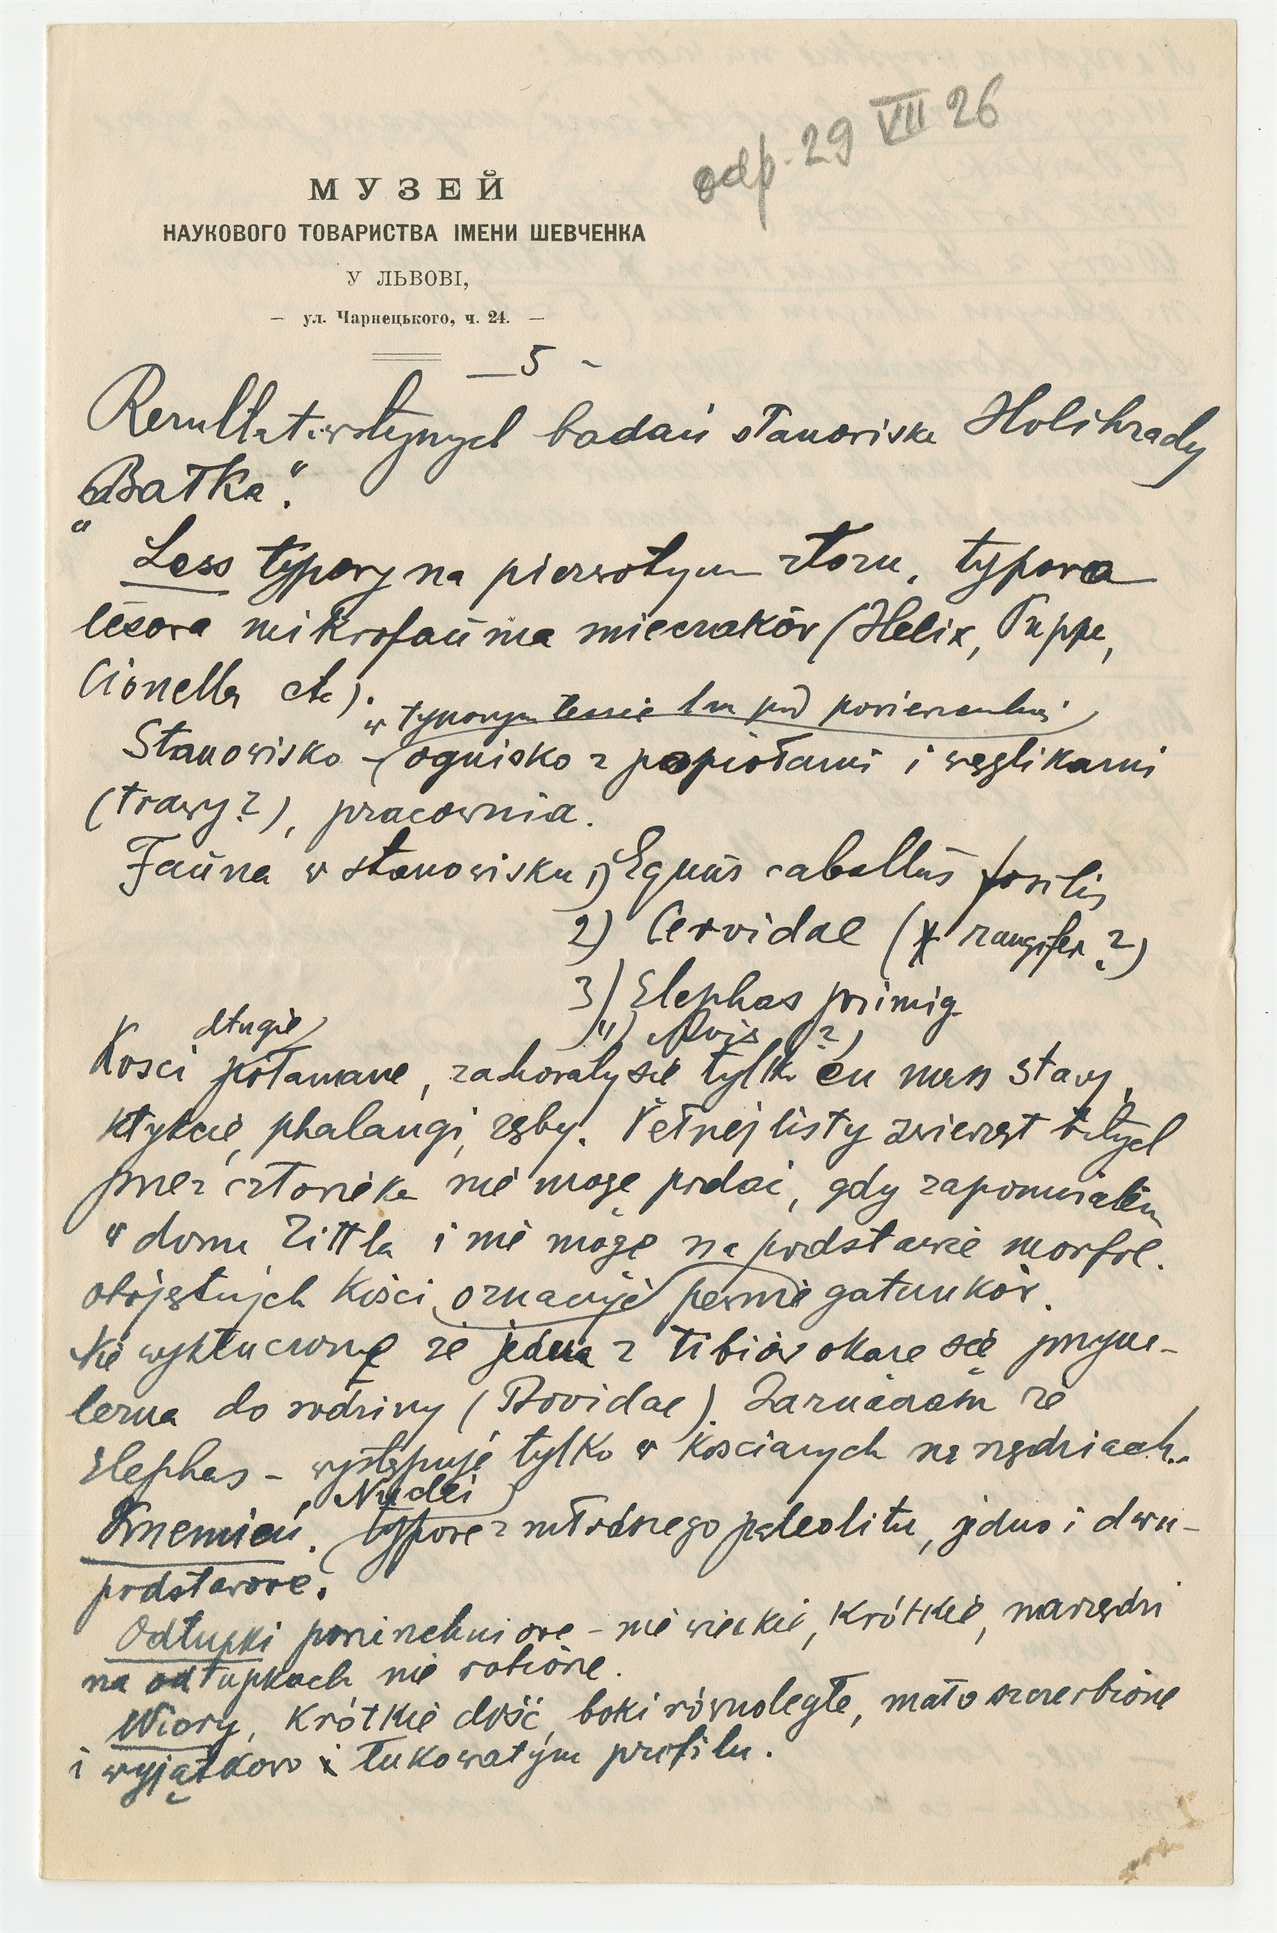 odp. 29 VII 26
МУЗЕЙ
НАУКОВОГО ТОВАРИСТВА ІМЕНИ ШЕВЧЕНКА
У ЛЬВОВІ,
— ул. Чарнецького, ч. 24. —
— 5 -
Rezultat wstępnych badań stanowiska Holihrady
„Batka“.
Less typowy na pierwotym złożu, typowa
lesowa mikrofauna mieczaków (Helix, Puppa,
Cionella etc).
w typowym lessie 1m pod powierzchnią
Stanowisko – ognisko z popiołami i węglikami
(trawy?), pracownia.
Fauna w stanowisku 1) Equus caballus fosilis
2) Cervidae (rangifer?)
3) Elephas primig.
4) Avis (?)
długie
Kosci połamane, zachowały się tylko en mass stawy,
kłykcie, phalangi, zęby. Pełnej listy zwierząt bitych
przez człowieka nie mogę podać, gdy zapomniałem
w domu Zittla i nie mogę na podstawie morfol.
obojętnych kości oznaczyć pewnie gatunków.
Nie wykluczone że jedna z tibiów okaże się przyna-
lezna do rodziny (Bovidae). Zaznaczam że
Elephas – występuje tylko w kościanych narzędziach.
Nuclei
Krzemień. typowe z młodszego paleolitu, jedno i dwu-
podstawowe.
Odłupki powierzchniowe – nie wielkie, krótkie, narzędzi
na odłupkach nie robiono.
Wióry, krótkie dość, boki równoległe, mało szczerbione
i wyjątkowo łukowatym profilu.